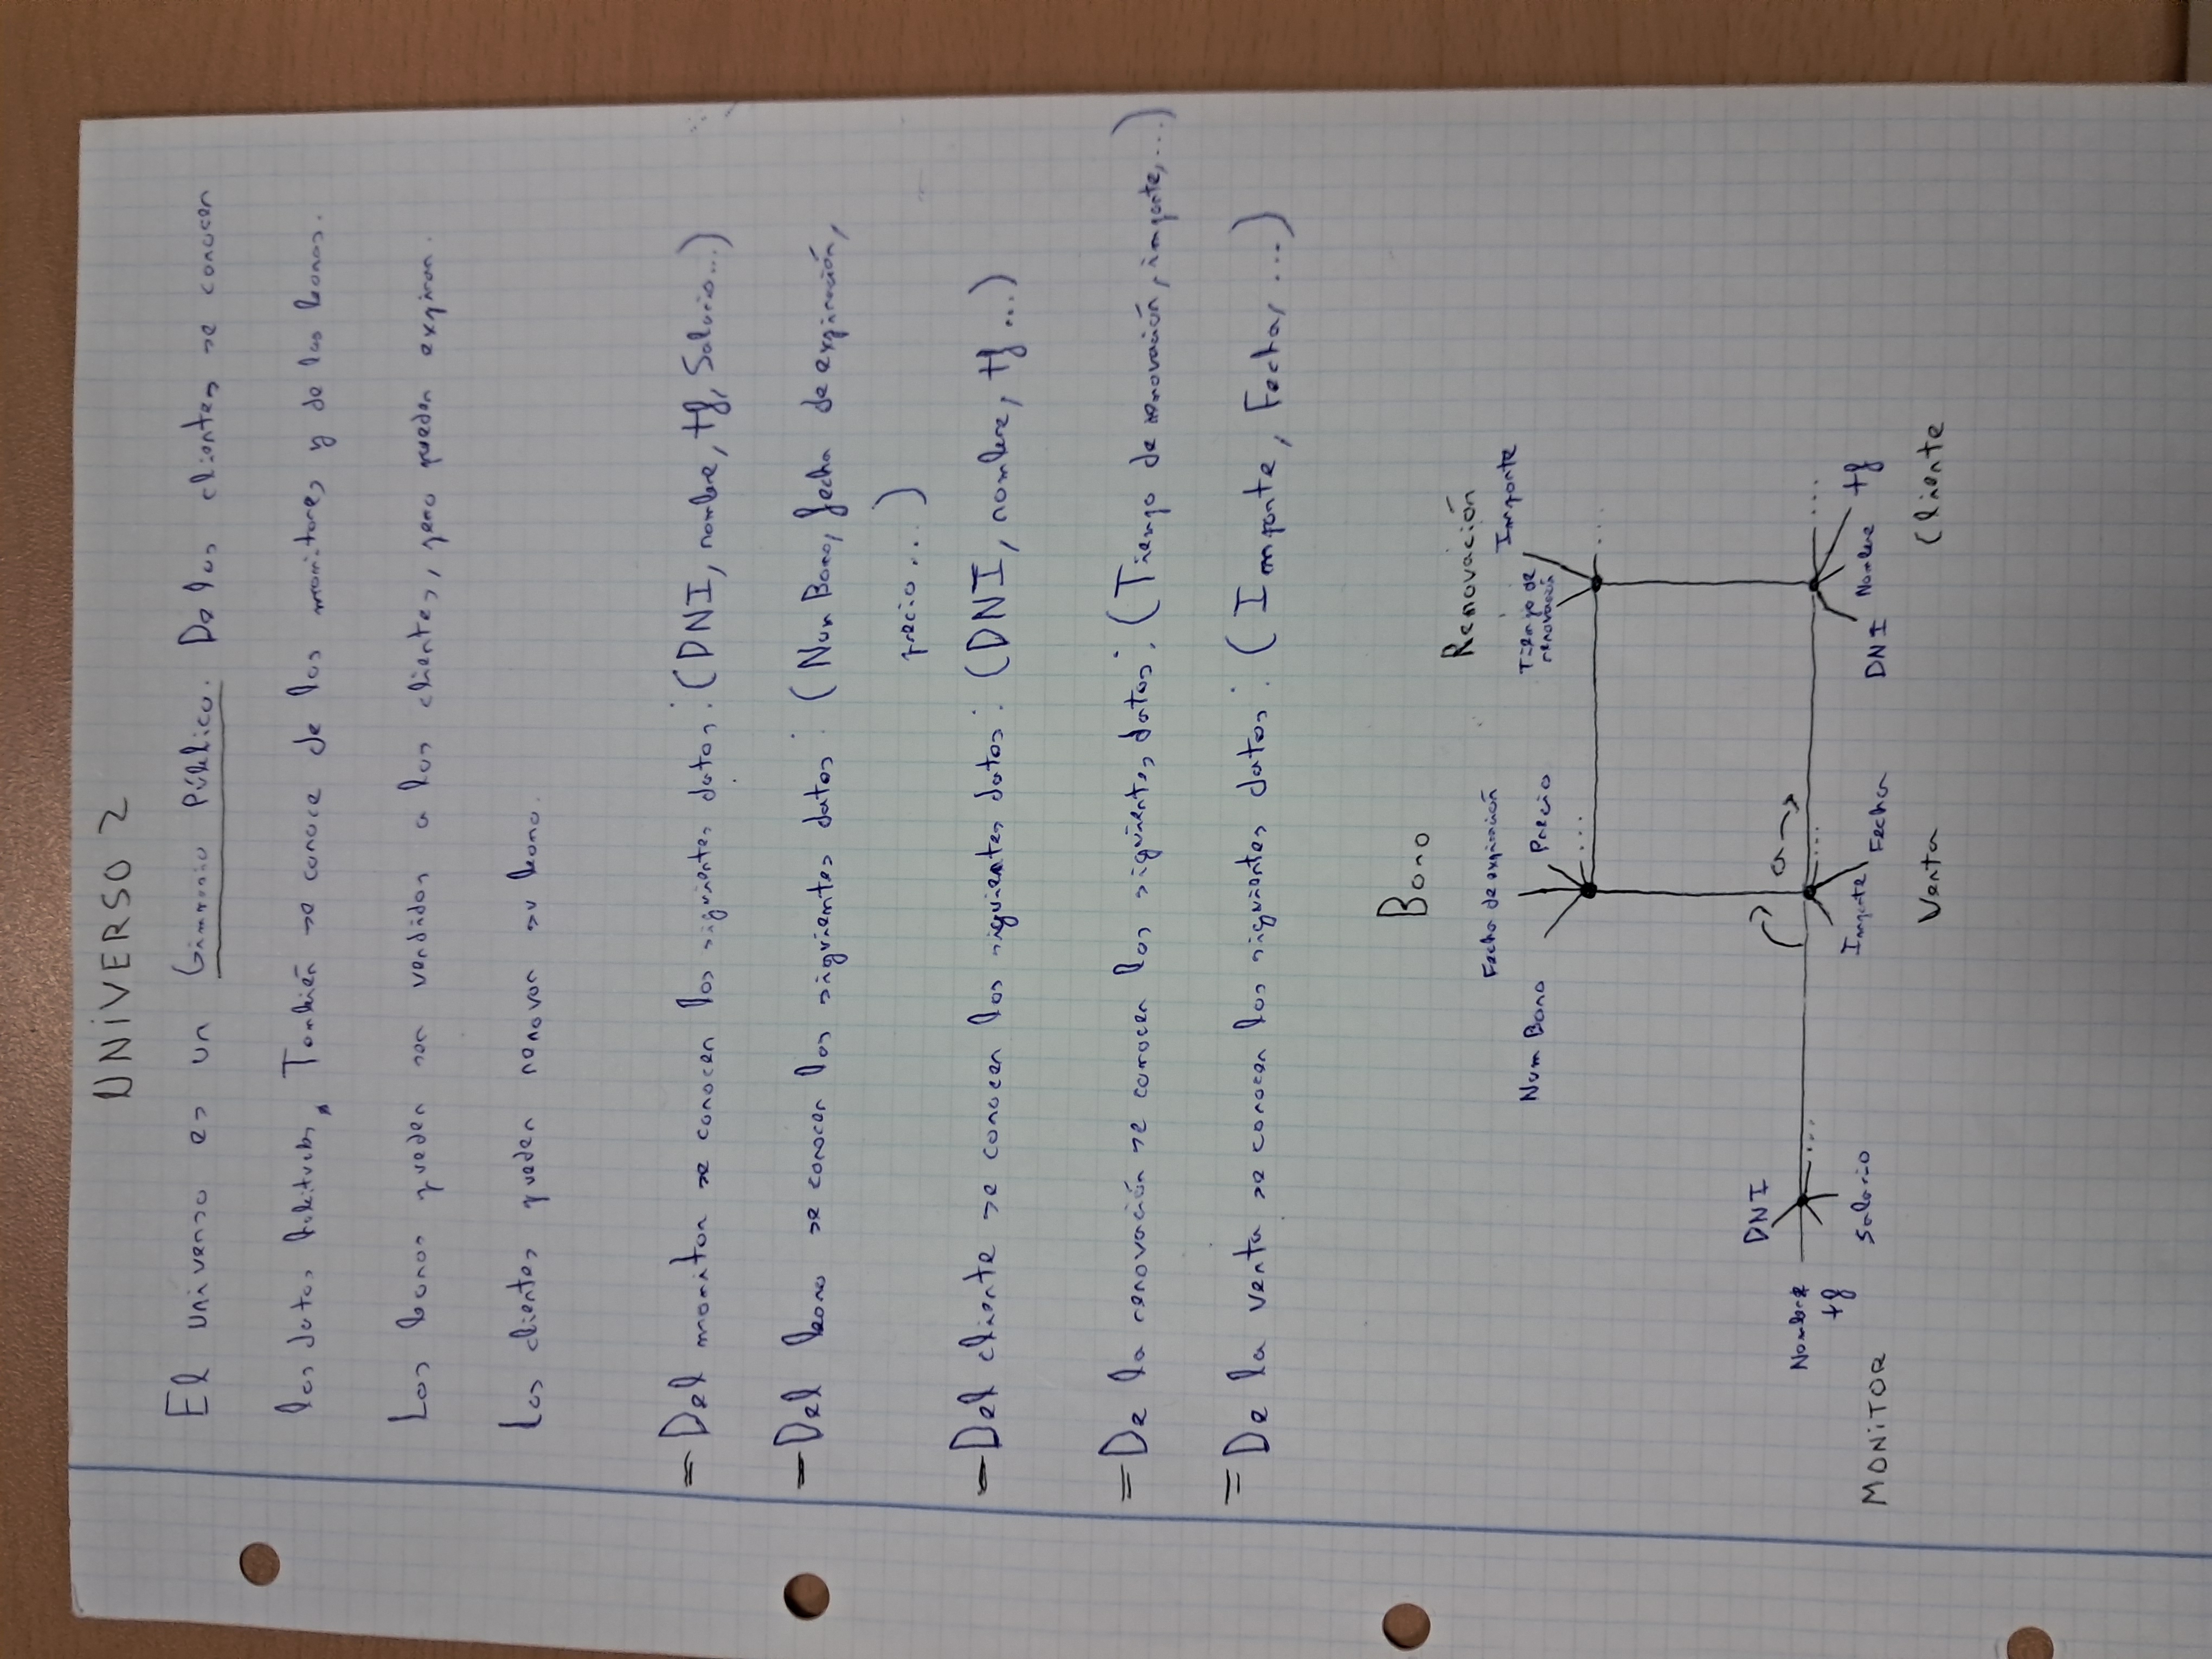 UNIVERSO 2
El universo es un Gimnasio Público. De los clientes se conocen
los datos habituales. También se conoce de los monitores y de los bonos.
Los bonos pueden ser vendidos a los clientes, pero pueden expirar.
Los clientes pueden renovar su bono.
- Del monitor se conocen los siguientes datos: (DNI, nombre, tf, Salario...)
- Del bono se conocen los siguientes datos: (Num Bono, fecha de expiración,
precio...)
- Del cliente se conocen los siguientes datos: (DNI, nombre, tf...)
= De la renovación se conocen los siguientes datos: (Tiempo de renovación, importe,...)
= De la venta se conocen los siguientes datos: (Importe, Fecha, ...)
Bono
Renovación
Fecha de expiración
Importe
Num Bono
Precio
Tiempo de
renovación
...
...
DNI
a →
Nombre
...
...
...
tf
Salario
Importe
Fecha
DNI
Nombre
tf
MONITOR
Venta
Cliente